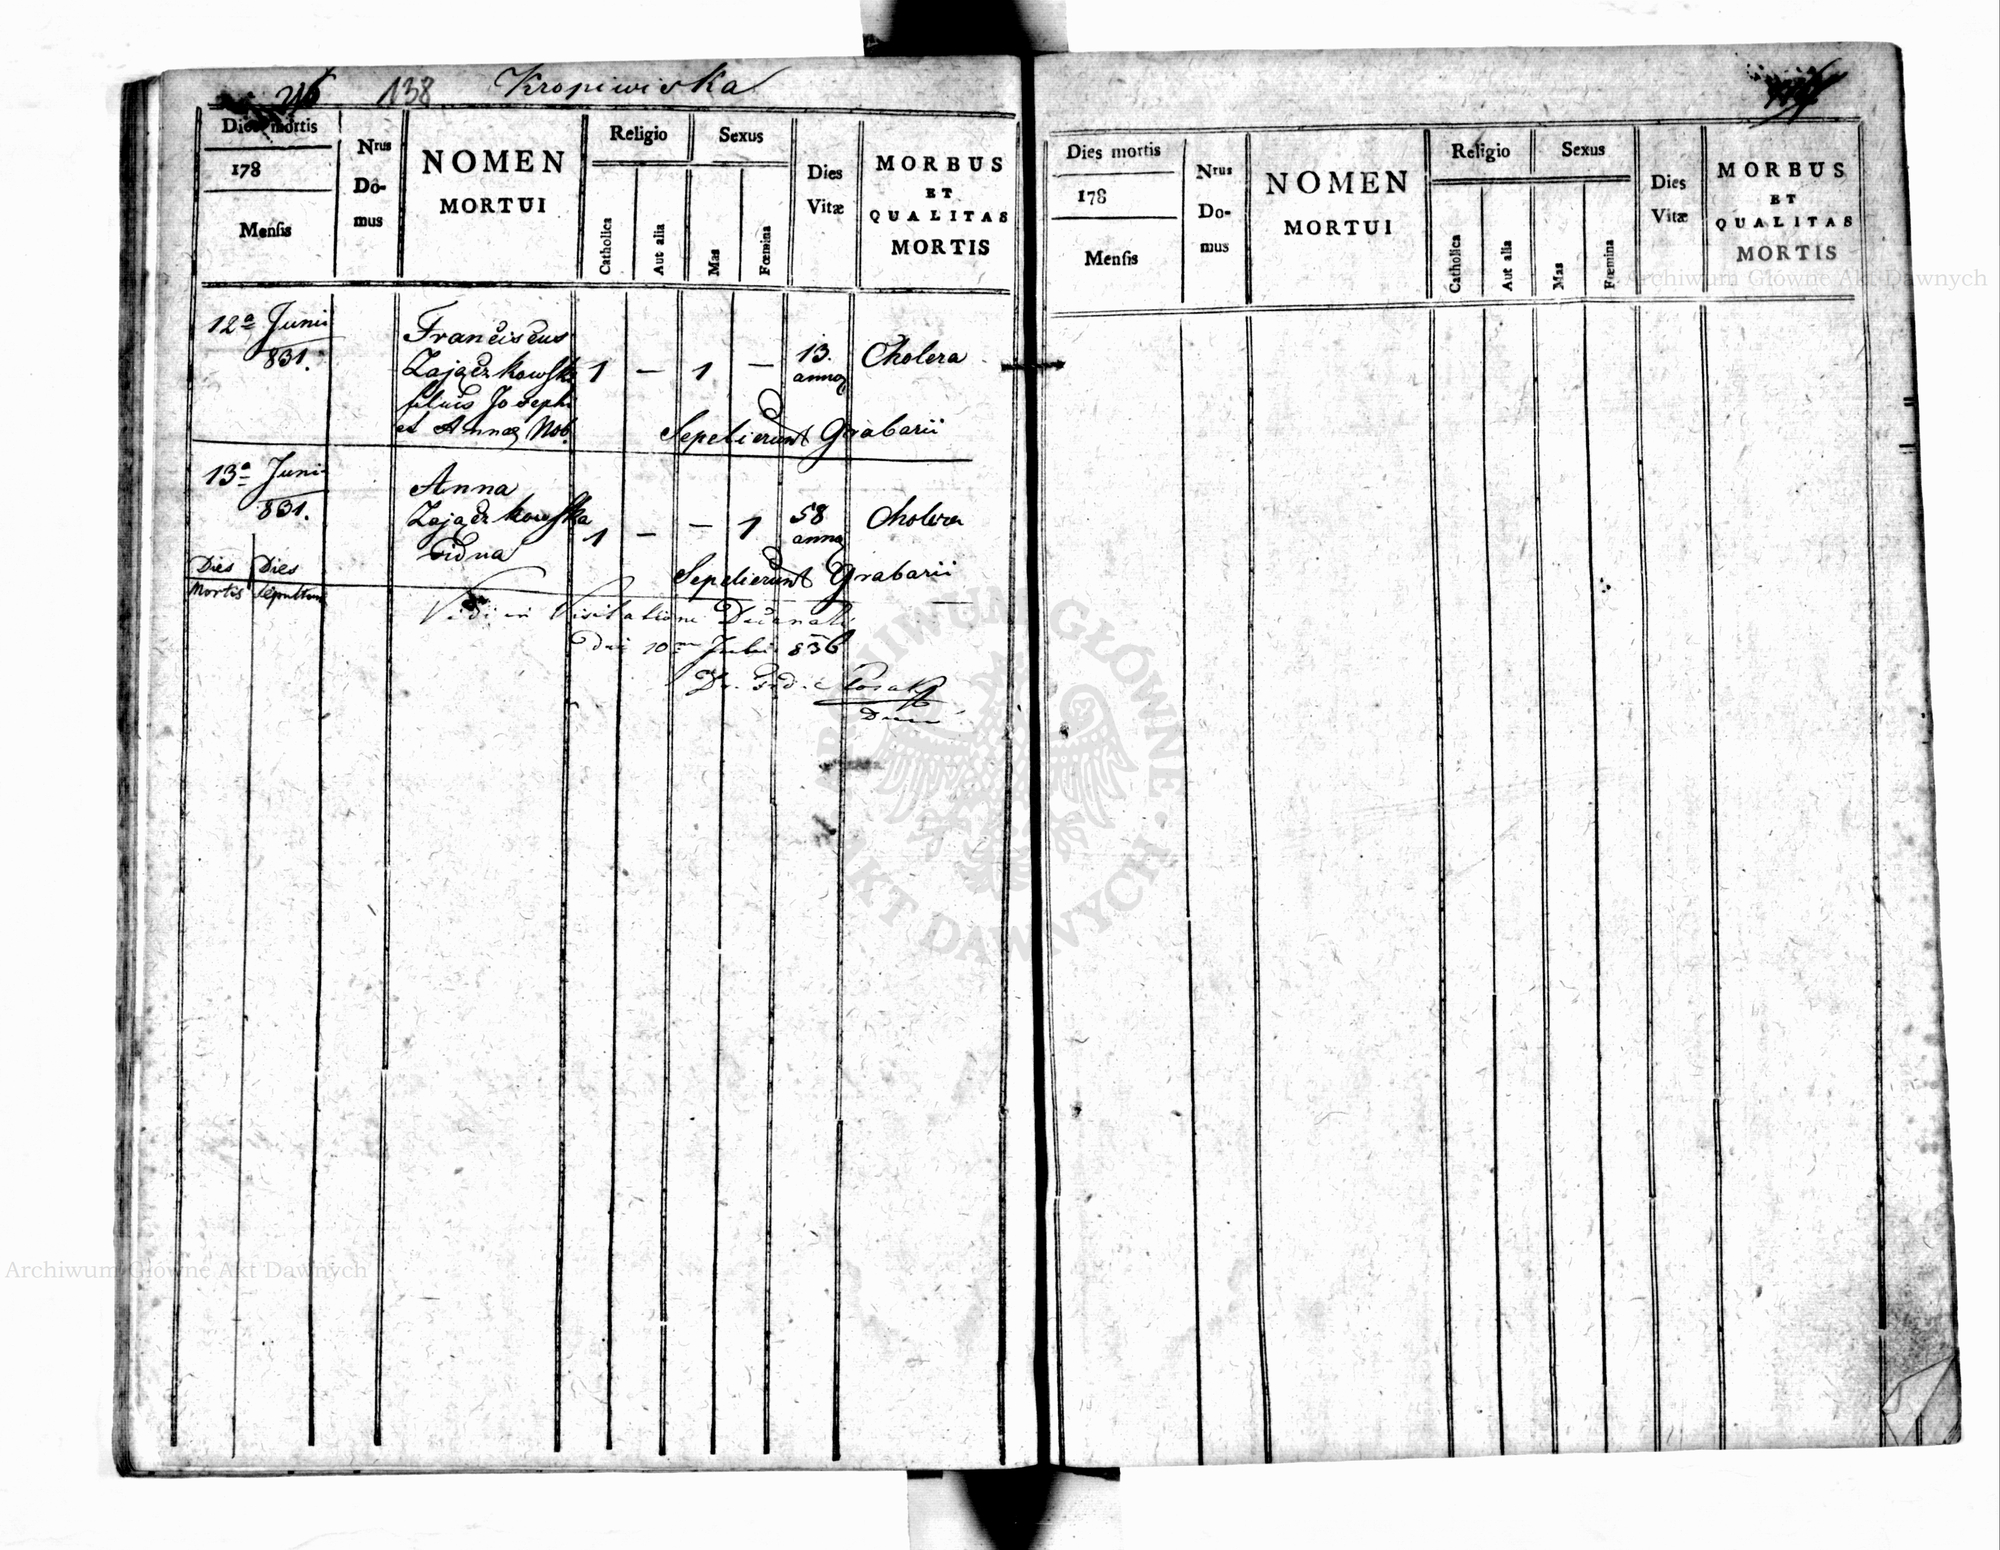 138 Kropiwiska
Dies mortis
178
Mensis
Nrus
Do-
mus
NOMEN
MORTUI
Religio
Catholica
Aut alia
Sexus
Mas
Fœmina
Dies
Vitæ
MORBUS
ET
QUALITAS
MORTIS
12a Junii
831.
Franciscus
Zajączkowski
filius Josephi
et Annæ Nob.
1 — 1 —
13.
annor
Cholera
Sepelierunt Grabarii
13a Junii
831.
Anna
Zajączkowska
Vidua
1 — — 1
58
annor
Cholera
Sepelierunt Grabarii
Dies Dies
Mortis Sepultura
Vidi in Visitatione Decanali
die 10 Julii 836
Dies mortis
178
Mensis
Nrus
Do-
mus
NOMEN
MORTUI
Religio
Catholica
Aut alia
Sexus
Mas
Fœmina
Dies
Vitæ
MORBUS
ET
QUALITAS
MORTIS
Archiwum Główne Akt Dawnych
ARCHIWUM GŁÓWNE AKT DAWNYCH
Archiwum Główne Akt Dawnych